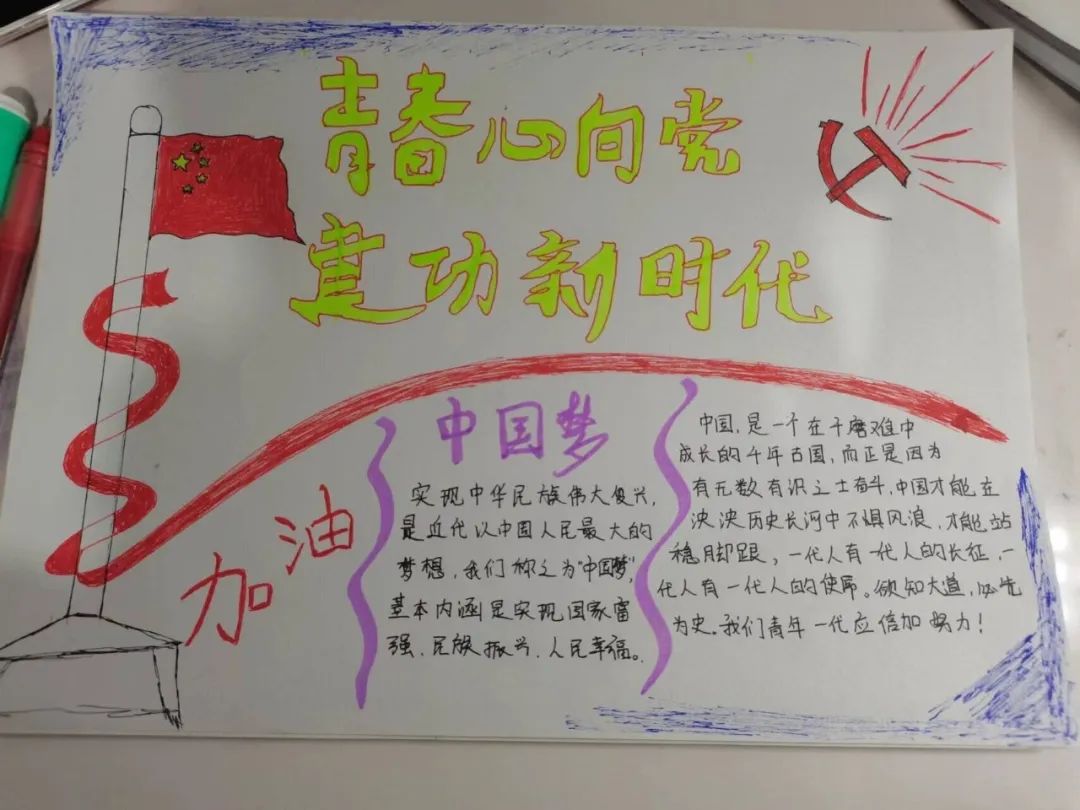 青春心向党
建功新时代
加油
中国梦
实现中华民族伟大复兴,
是近代以中国人民最大的
梦想,我们称之为"中国梦",
基本内涵是实现国家富
强、民族振兴、人民幸福。
中国,是一个在千磨难中
成长的千年古国,而正是因为
有无数有识之士奋斗,中国才能在
泱泱历史长河中不惧风浪,才能站
稳脚跟,一代人有一代人的长征,一
代人有一代人的使命。欲知大道,必先
为史。我们青年一代应倍加努力!